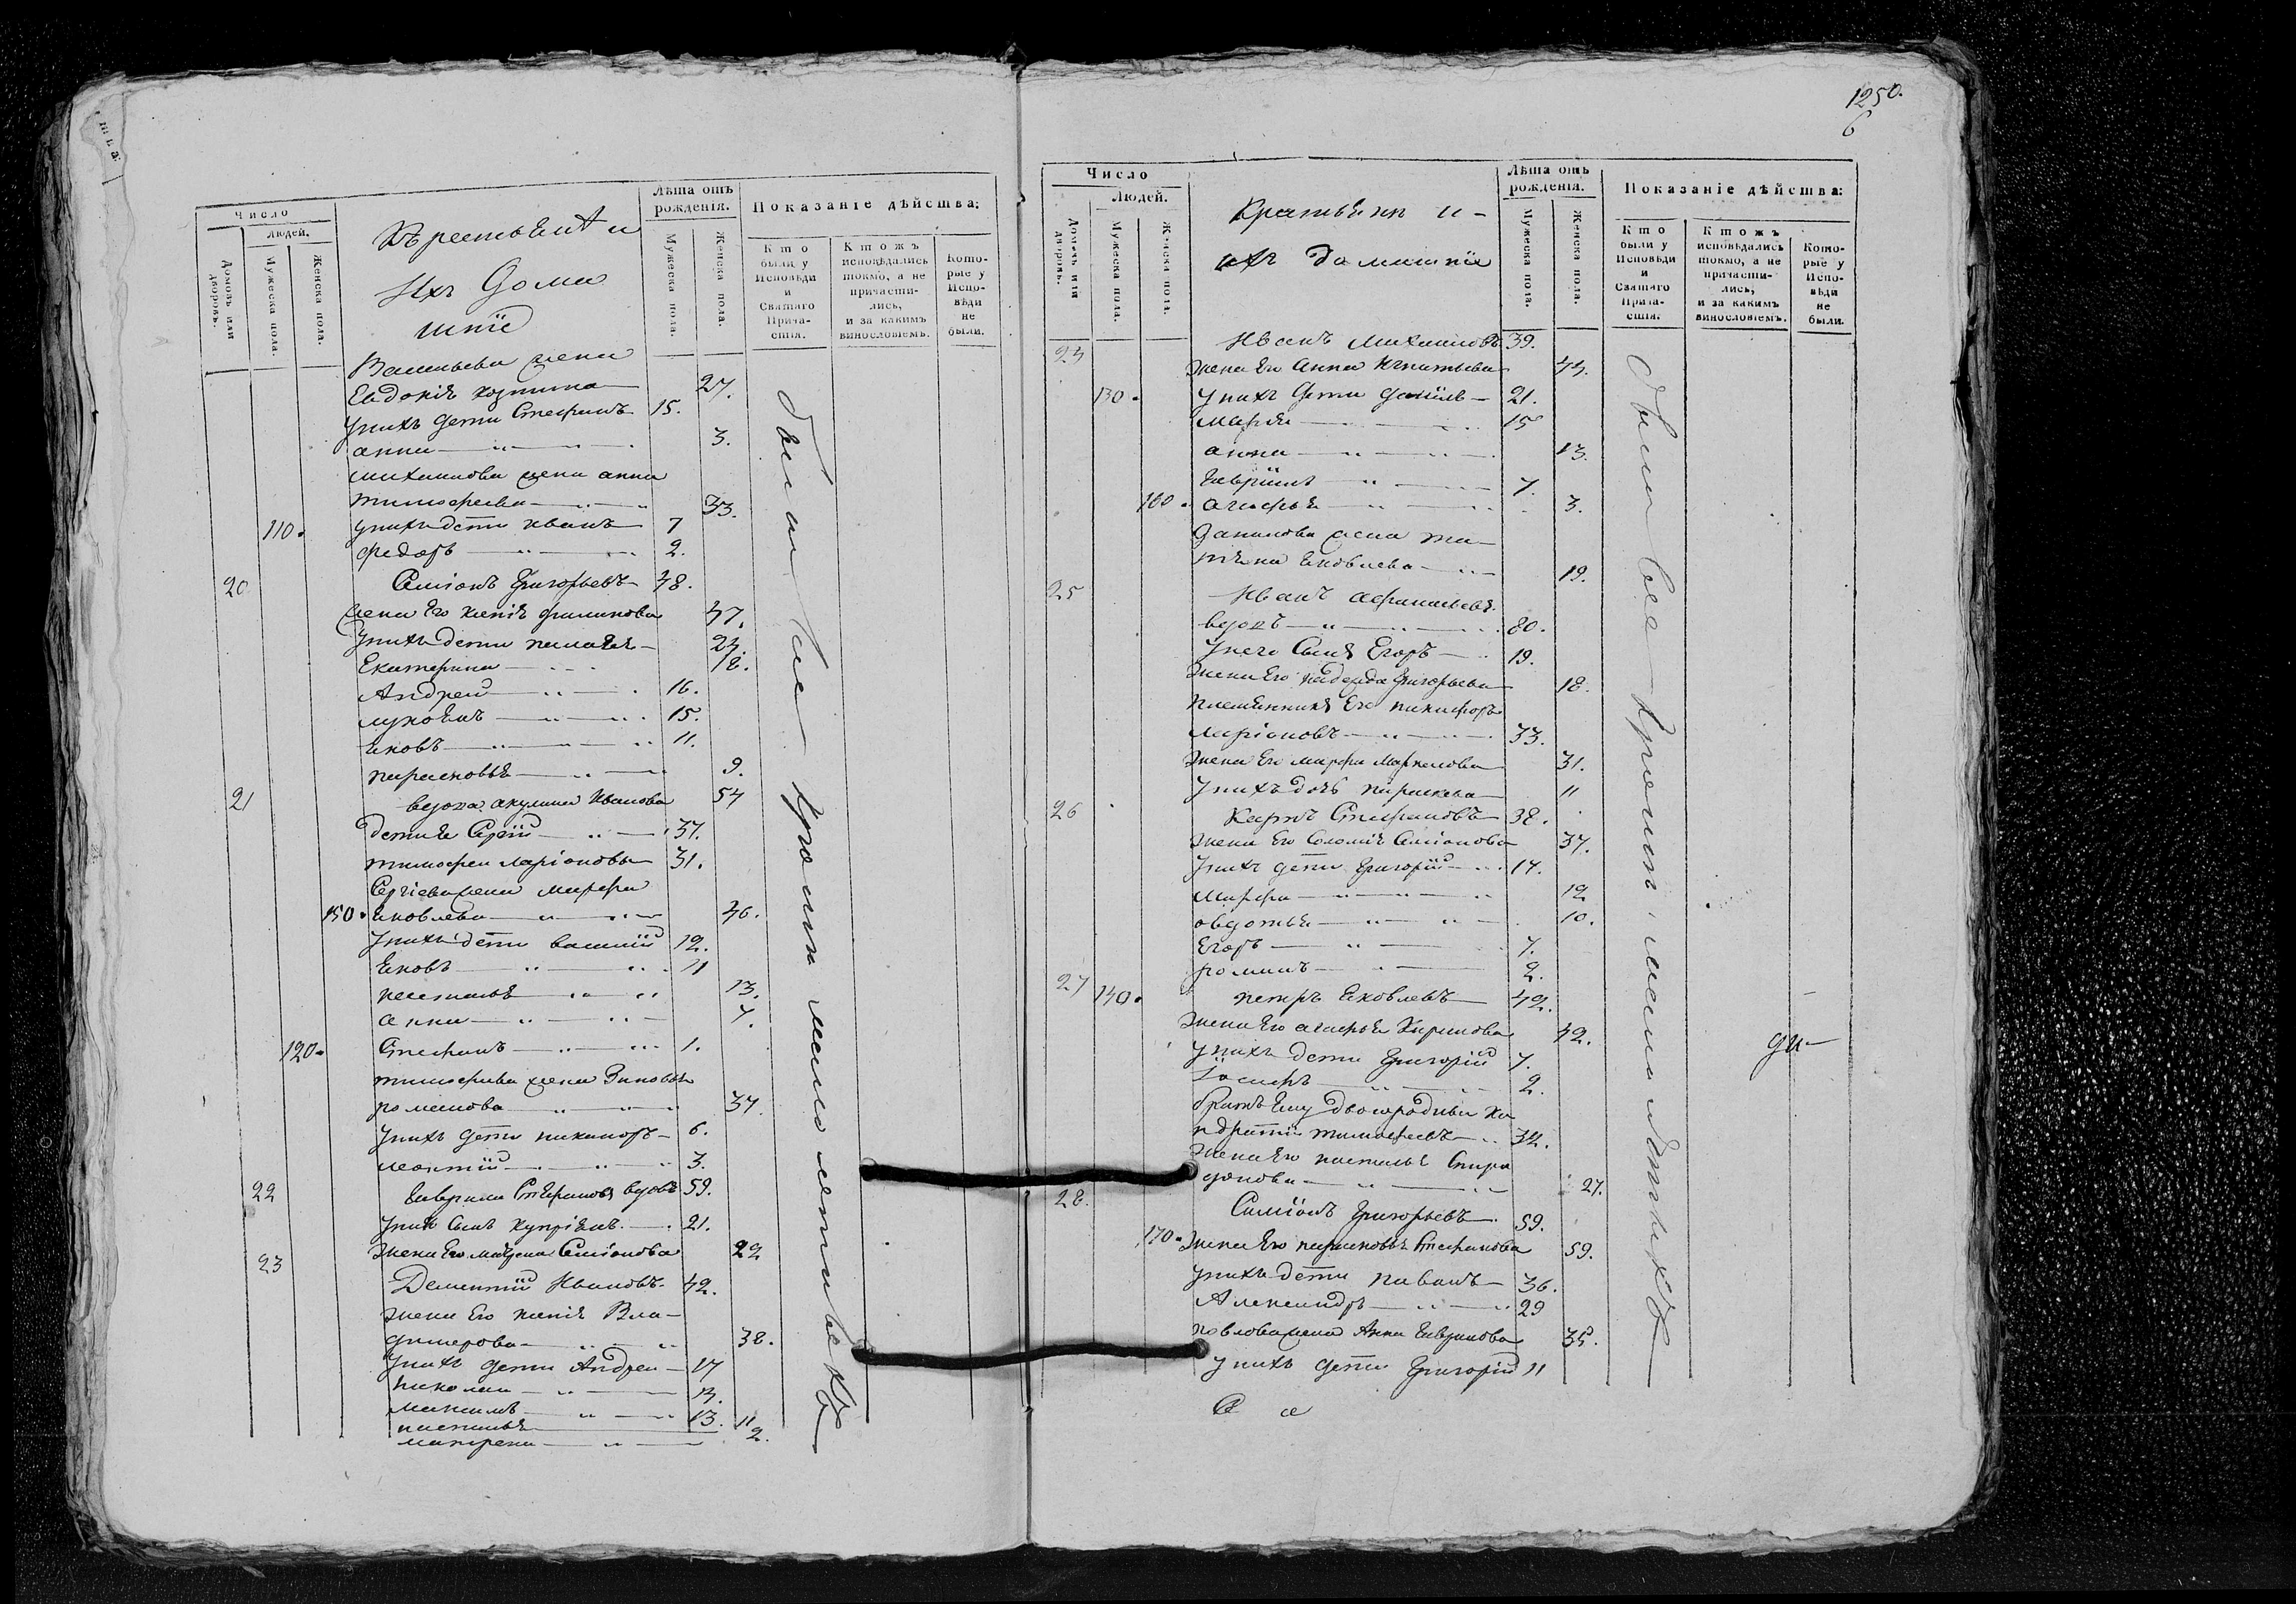 Число
людей.
Домовъ или дворовъ.
Мужеска пола.
Женска пола.
Кърестьяня и
Ихъ Дома
шніе
Лѣта отъ рожденія.
Мужеска пола.
Женска пола.
Показаніе дѣйства:
Кто были у Исповѣди и Святаго Прича-стія.
Ктожъ исповѣдались токмо, а не причасти-лись, и за какимъ винословіемъ.
Кото-рые у Испо-вѣди не были.
Васильева жена
Евдокія 27.
Унихъ дети Стефанъ 15.
анна 3.
михаилова жена анна
тимофеева 33.
110. унихъ дети иванъ 7
федоръ 2.
20 Симіонъ Григорьевъ 48.
жена Его ксенія филипова 47.
Унихъ дети 24.
Екатерина 18.
Андреи 16.
лукоянъ 15.
Яковъ 11.
парасковья 9.
21 вдова акулина Иванова 54
дети Ея Сергіи 37.
тимофеи ларіоновы 31.
Сергіева жена марфа
150. Яковлева 46.
Унихъ дети василіи 12.
Яковъ 11
настасья 13.
анна 7.
120. Стефанъ 1.
тимофеева жена Зиновья
романова 37.
Унихъ дети никаноръ 6.
леонтіи 3.
22 Гаврила Стефановъ вдовъ 59.
Унихъ Сынъ купріянъ 21.
жена Его матрена Симіонова 22
23 Дементіи Ивановъ 42.
жена Его ксенія Вла-
димерова 38.
Унихъ дети Андреи 17
николаи
максимъ 13.
настасья 11
матрена 2.
были все кроми мало летнавехъ
1250.
6
Число
Людей.
Домовъ или дворовъ.
Мужеска пола.
Женска пола.
Крестьяня и-
ихъ домашніе
Лѣта отъ рожденія.
Мужеска пола.
Женска пола.
Показаніе дѣйства:
Кто были у Исповѣди и Святаго Прича-стія.
Ктожъ исповѣдались токмо, а не причасти-лись, и за какимъ винословіемъ.
Кото-рые у Испо-вѣди не были.
24 Иванъ Михаиловъ 39.
жена Его Анна Игнатьева 44.
130. Унихъ дети даніилъ 21.
маръя 15
анна 13.
Гавріилъ 7.
160. агафья 3.
данилова жена та-
тяна Яковлева 19.
25 Иванъ афанасьевъ
вдовъ 80.
Унего Сынъ Егоръ 19.
жена Его надежда Григорьева 18.
племянникъ Его никифоръ
ларіоновъ 33.
жена Его марфа Маркелова 31.
Унихъ дочь параскева 11
26 Карпъ Стефановъ 38.
жена Его Соломія Симіонова 37.
Унихъ дети Григоріи 14.
Марфа 12
овдотья 10.
Егоръ 7.
романъ 2.
27 140. петръ Яковлевъ 42.
жена Его агафья Кирилова 42.
Унихъ дети Григоріи 7.
Іосифъ 2.
братъ Ему двоюродныи Ка
ндратіи тимофеевъ 34.
жена Его настасья Спири
донова 27.
28. Симіонъ Григорьевъ 59.
170. жена Его парасковья Стефанова 59.
Унихъ дети павилъ 36.
Александръ 29
павлова жена Анна Гаврилова 35.
Унихъ дети Григоріи 11
были все кроми мало летнихъ